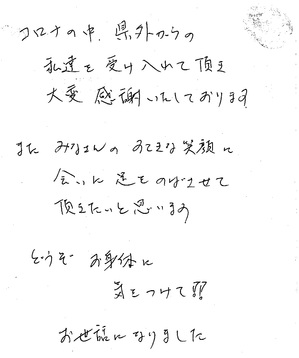 コロナの中、県外からの
私達を受け入れて頂き
大変感謝いたしております
また みなさんのすてきな笑顔に
会いに足をのばさせて
頂きたいと思います
どうぞ お身体に
気をつけて!!
お世話になりました